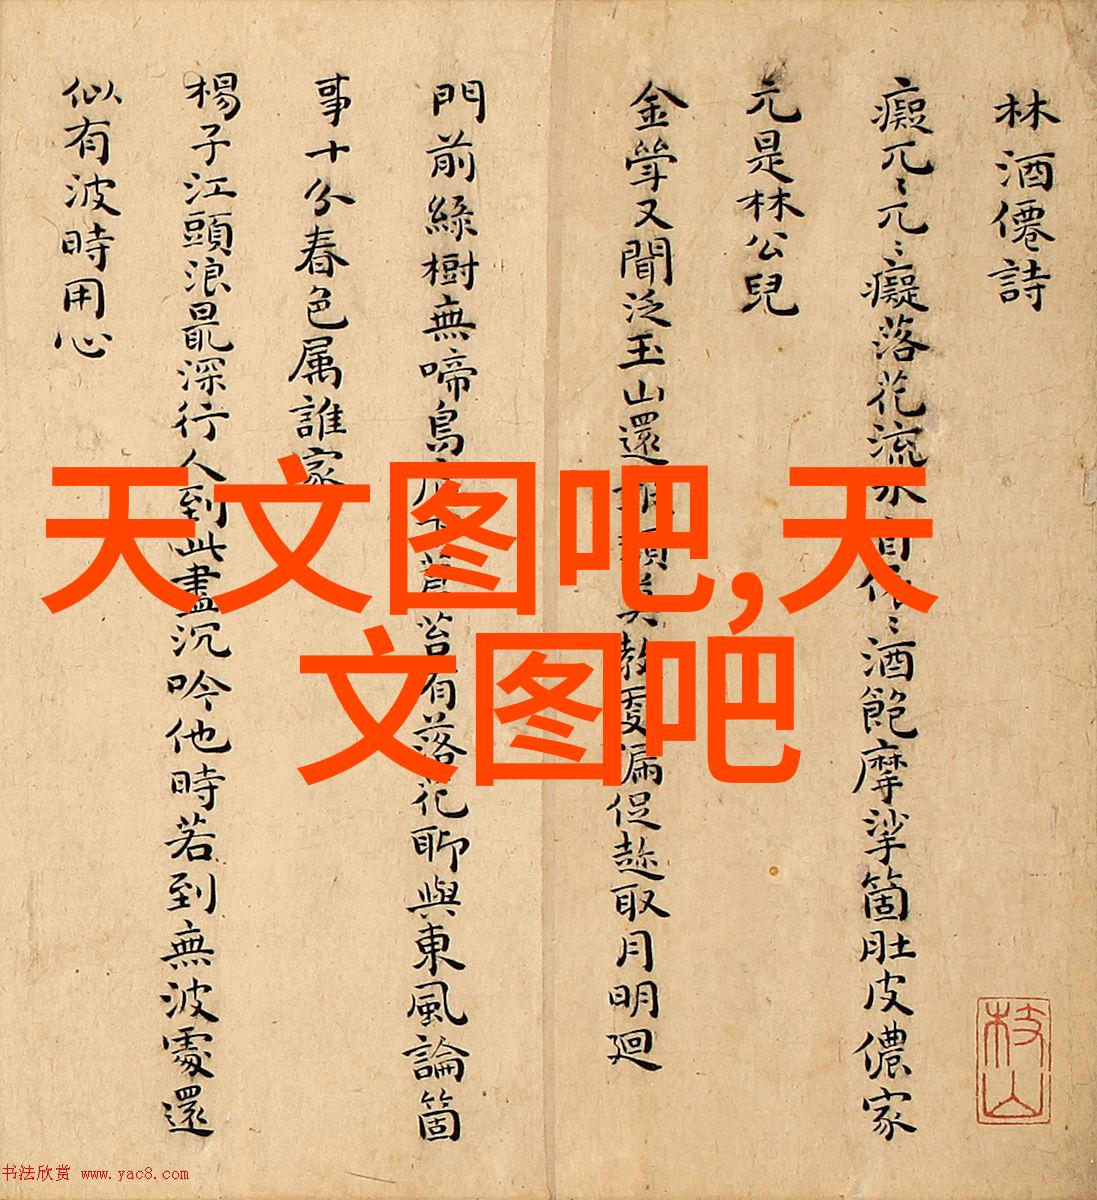 林酒僊詩
癡兀〻兀〻癡落花流水自依〻酒飽摩挲箇肚皮儂家
元是林公兒
金斝又聞泛玉山還 頹莫教更漏促趂取月明廻
門前綠樹無啼鳥 苔有落花聊與東風論箇
事十分春色属誰家
楊子江頭浪最深行人到此盡沉吟他時若到無波處還
似有波時用心
枝山
天文图吧,天
文图吧
书法欣赏 www.yac8.com